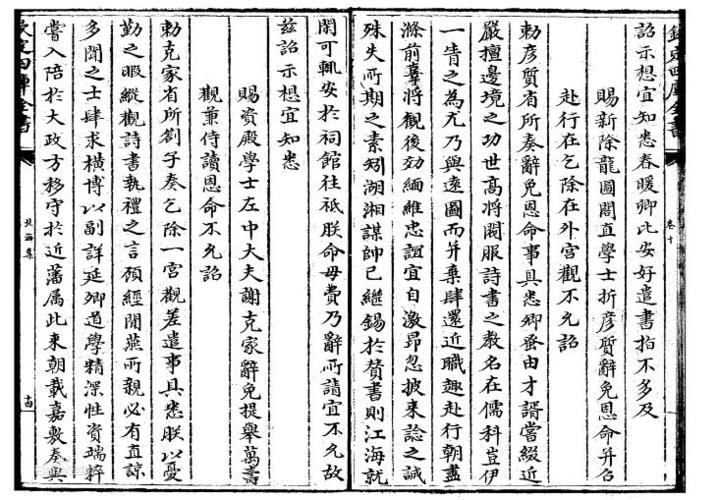 欽定四庫全書
卷十
詔示想宜知悉春暖卿比安好遣書指不多及
賜新除龍圖閣直學士折彦質辭免恩命并召
赴行在乞除在外宫觀不允詔
勅彦質省所奏辭免恩命事具悉卿蚤由才諝嘗綴近
嚴擅邊境之功世高將閥服詩書之教名在儒科豈伊
一眚之為尤乃與逺圖而并棄肆還近職趣赴行朝盡
滌前辜將觀後効緬維忠誼宜自激昂忽披來諗之誠
殊失所期之素矧湖湘謀帥已繼錫於贊書則江海就
閑可輒安於祠館往祗朕命毋費乃辭所請宜不允故
兹詔示想宜知悉
賜資殿學士左中大夫謝克家辭免提舉萬壽
觀兼侍讀恩命不允詔
勅克家省所劄子奏乞除一宫觀差遣事具悉朕以憂
勤之暇縱觀詩書執禮之言顧經閒燕所親必有直諒
多聞之士肆求横博以副詳延卿道學精深性資端粹
嘗入陪於大政方移守於近藩属此来朝載嘉敷奏與
欽定四庫全書
北海集
十四